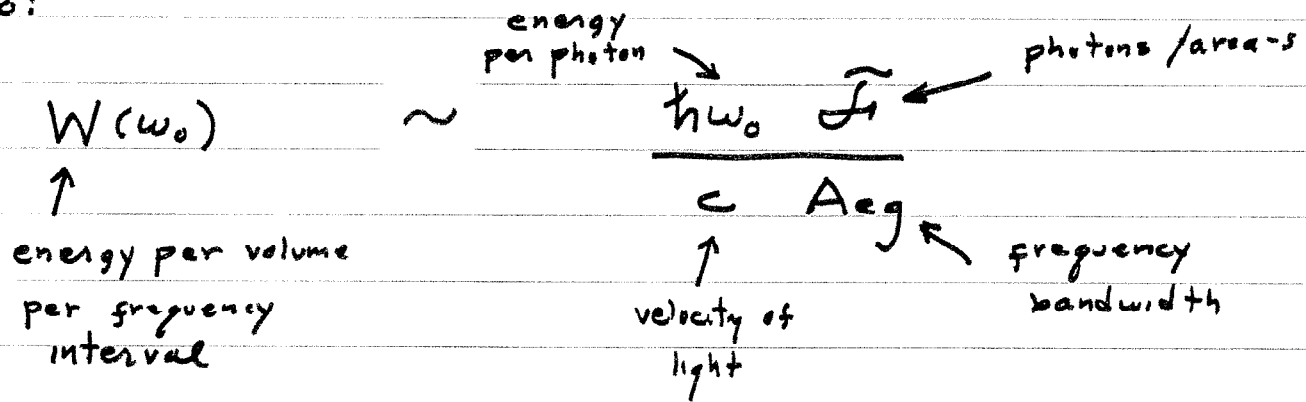 o:
energy
per photon
photons /area-s
W(ω₀) ~ ħω₀ f̃ / c Aeg
energy per volume
per frequency
interval
velocity of
light
frequency
bandwidth